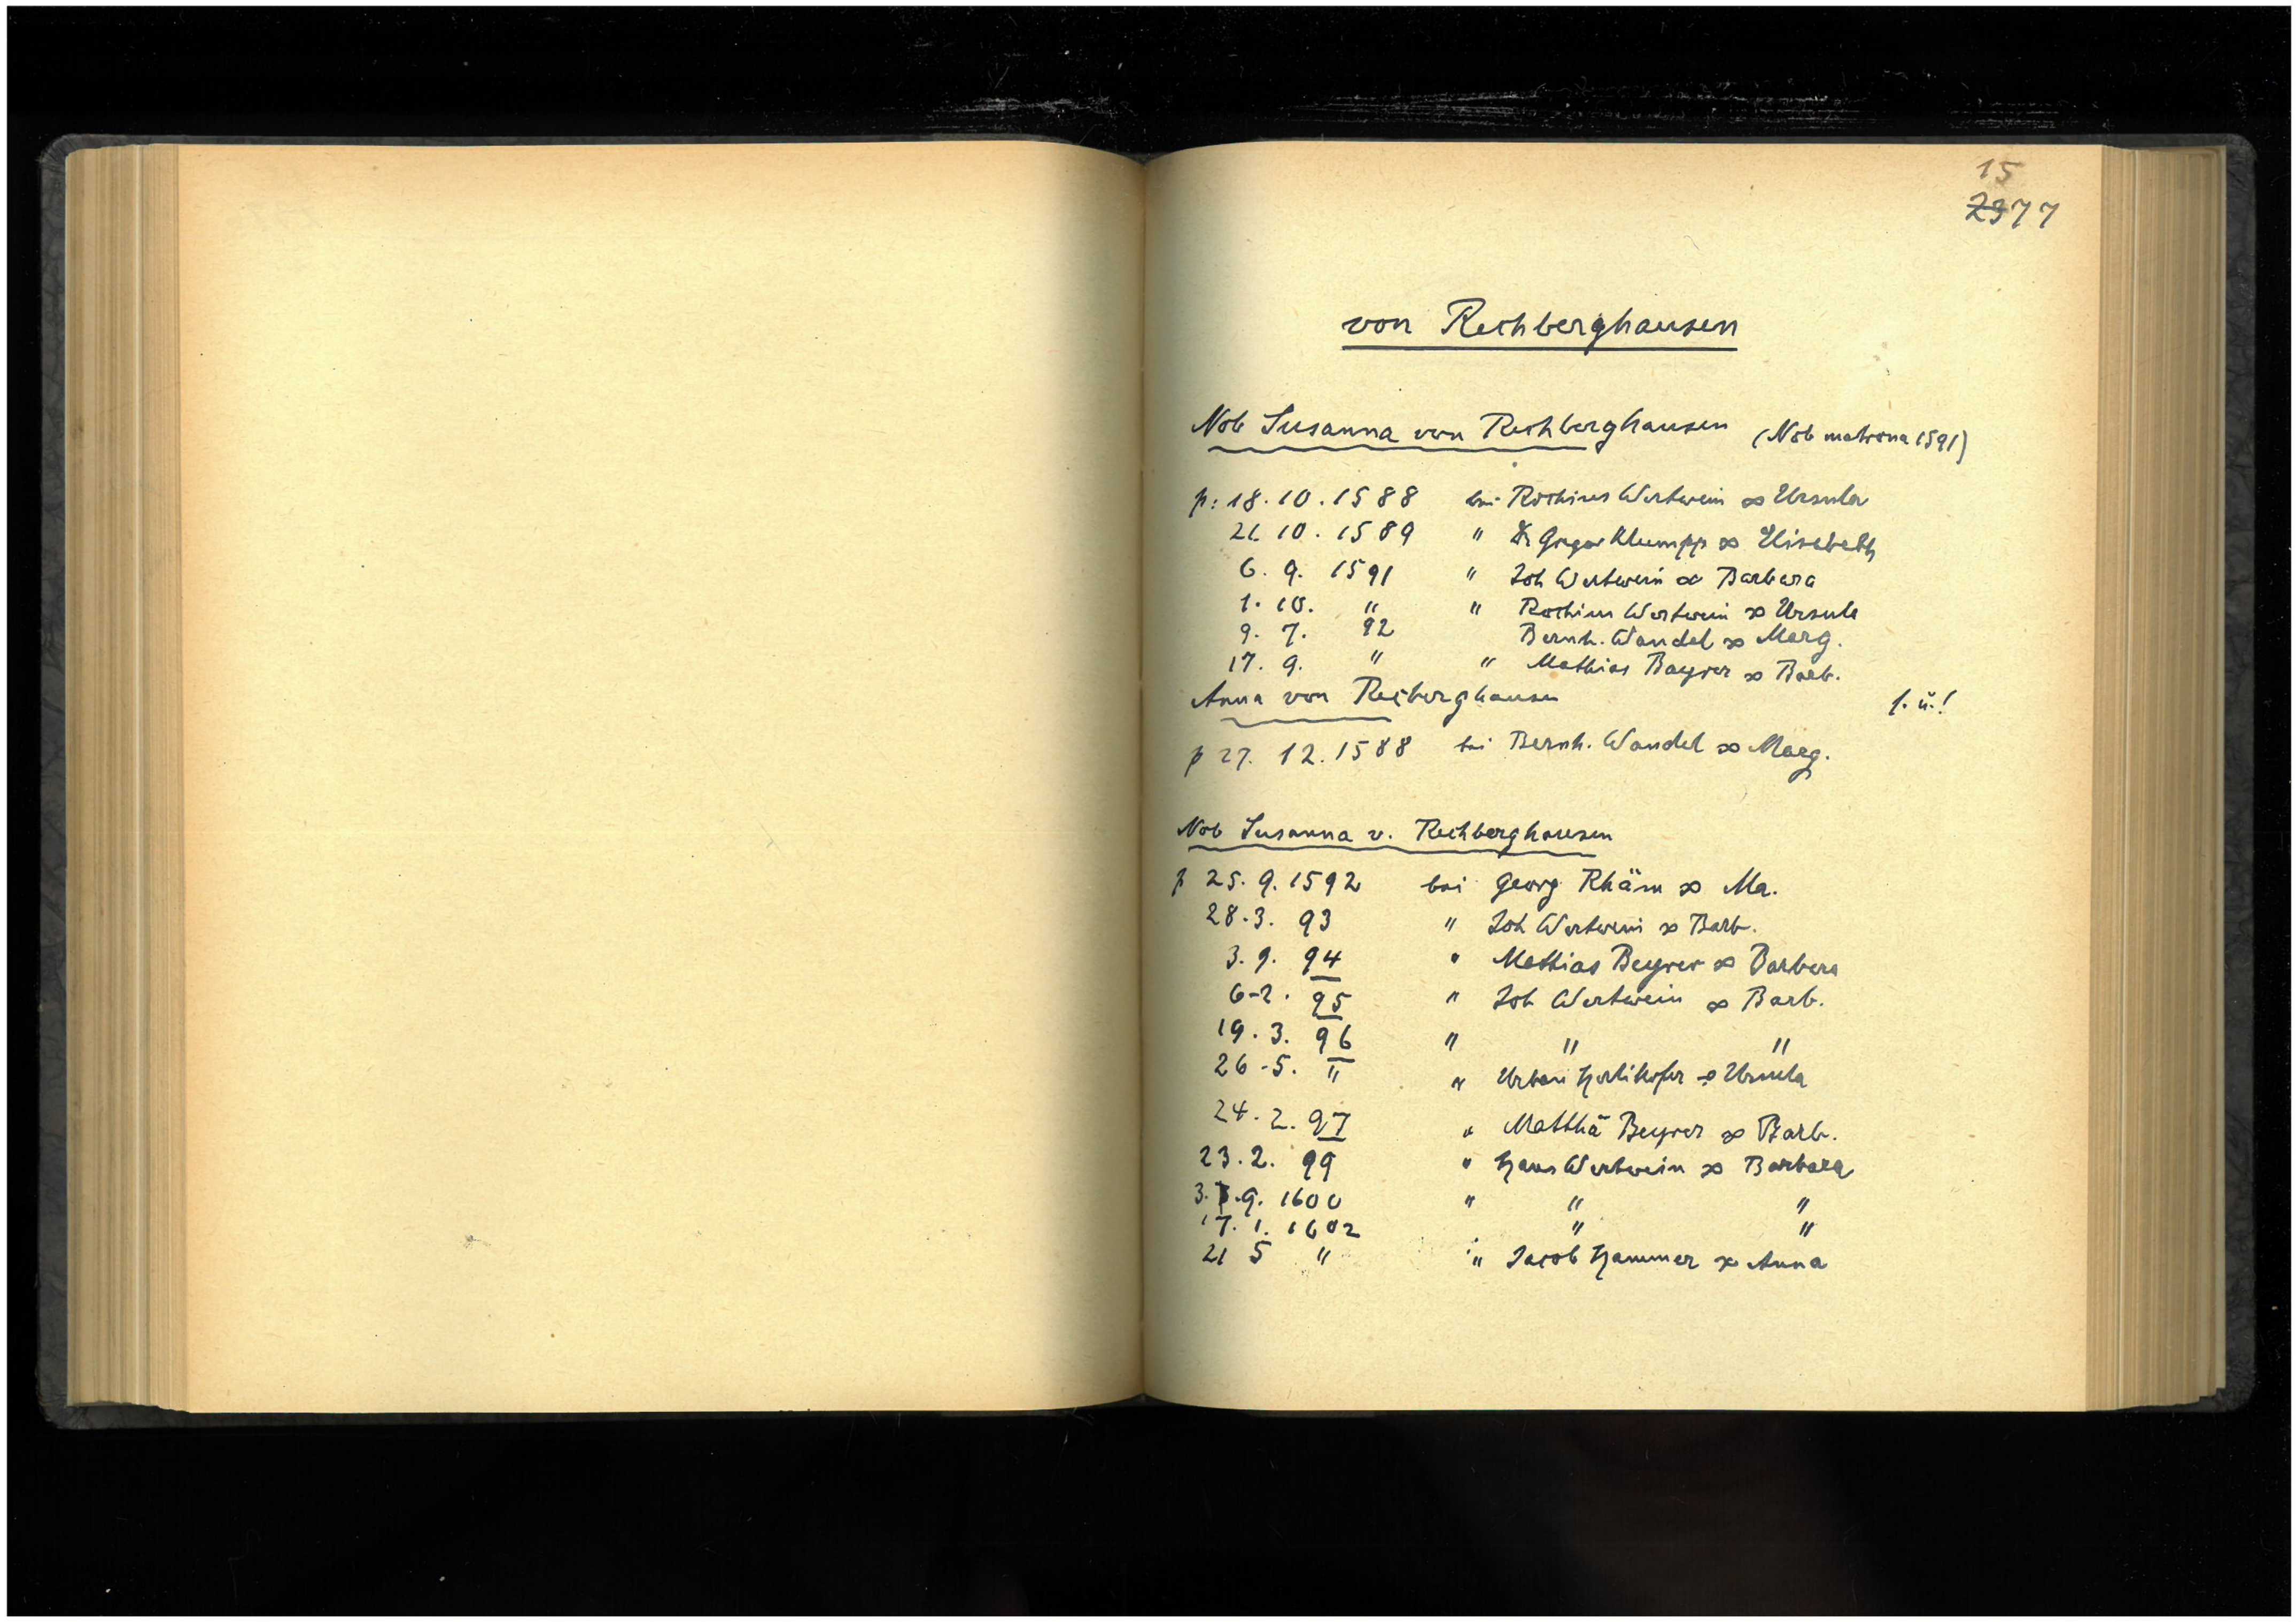 15
2377
von Rechberghausen
Nob Susanna von Rechberghausen (Nob matrona 1591)
p: 18.10.1588 bei Rochius Wertwein ∞ Ursula
21. 10. 1589 " Dr Gregor Klumpp ∞ Elisabeth
6. 9. 1591 " Joh Wertwein ∞ Barbara
1. 10. " " Rochius Wertwein ∞ Ursula
9. 7. 92 Bernh. Wandel ∞ Marg.
17. 9. " " Mathias Bayrer ∞ Barb.
Anna von Recberghausen f. ü.!
p 27. 12. 1588 bei Bernh. Wandel ∞ Marg.
Nob Susanna v. Rechberghausen
p 25. 9. 1592 bei Georg Rhäm ∞ Ma.
28.3. 93 " Joh Wertwein ∞ Barb.
3. 9. 94 " Mathias Beyrer ∞ Barbara
6-2. 95 " Joh Wertwein ∞ Barb.
19. 3. 96 " " "
26-5. " " Urban Horlikofer ∞ Ursula
24. 2. 97 " Matthä Beyrer ∞ Barb.
23. 2. 99 " Hans Wertwein ∞ Barbara
3. 9. 1600 " " "
17. 1. 1602 " "
21 5 " " Jacob Hammer ∞ Anna